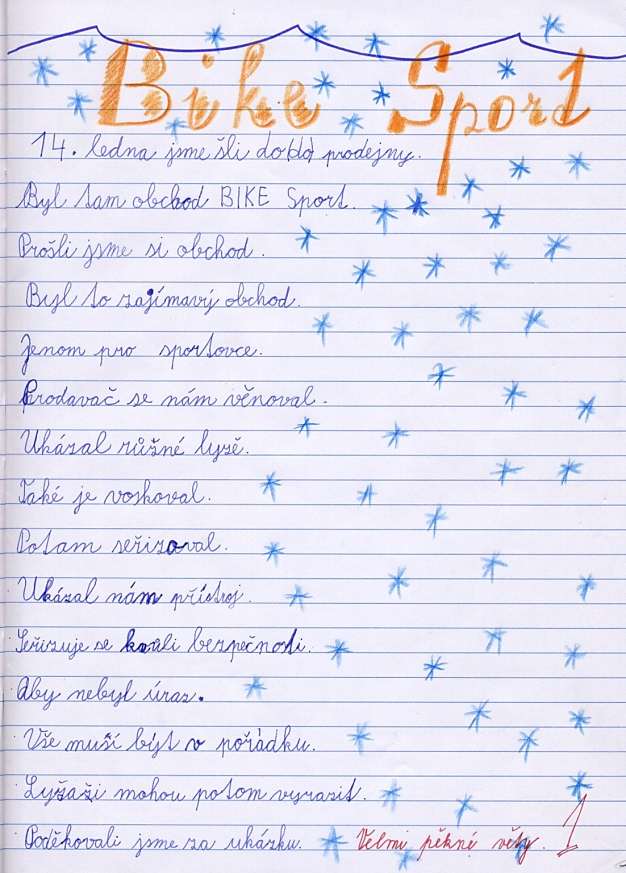 Bike Sport
14. ledna jsme šli do prodejny.
Byl tam obchod BIKE Sport.
Prošli jsme si obchod.
Byl to zajímavý obchod.
Jenom pro sportovce.
Prodavač se nám věnoval.
Ukázal různé lyže.
Také je voskoval.
Potom seřizoval.
Ukázal nám přístroj.
Seřizuje se kvůli bezpečnosti.
Aby nebyl úraz.
Vše musí být v pořádku.
Lyžaži mohou potom vyrazit.
Poděkovali jsme za ukázku. Velmi pěkné věty. 1